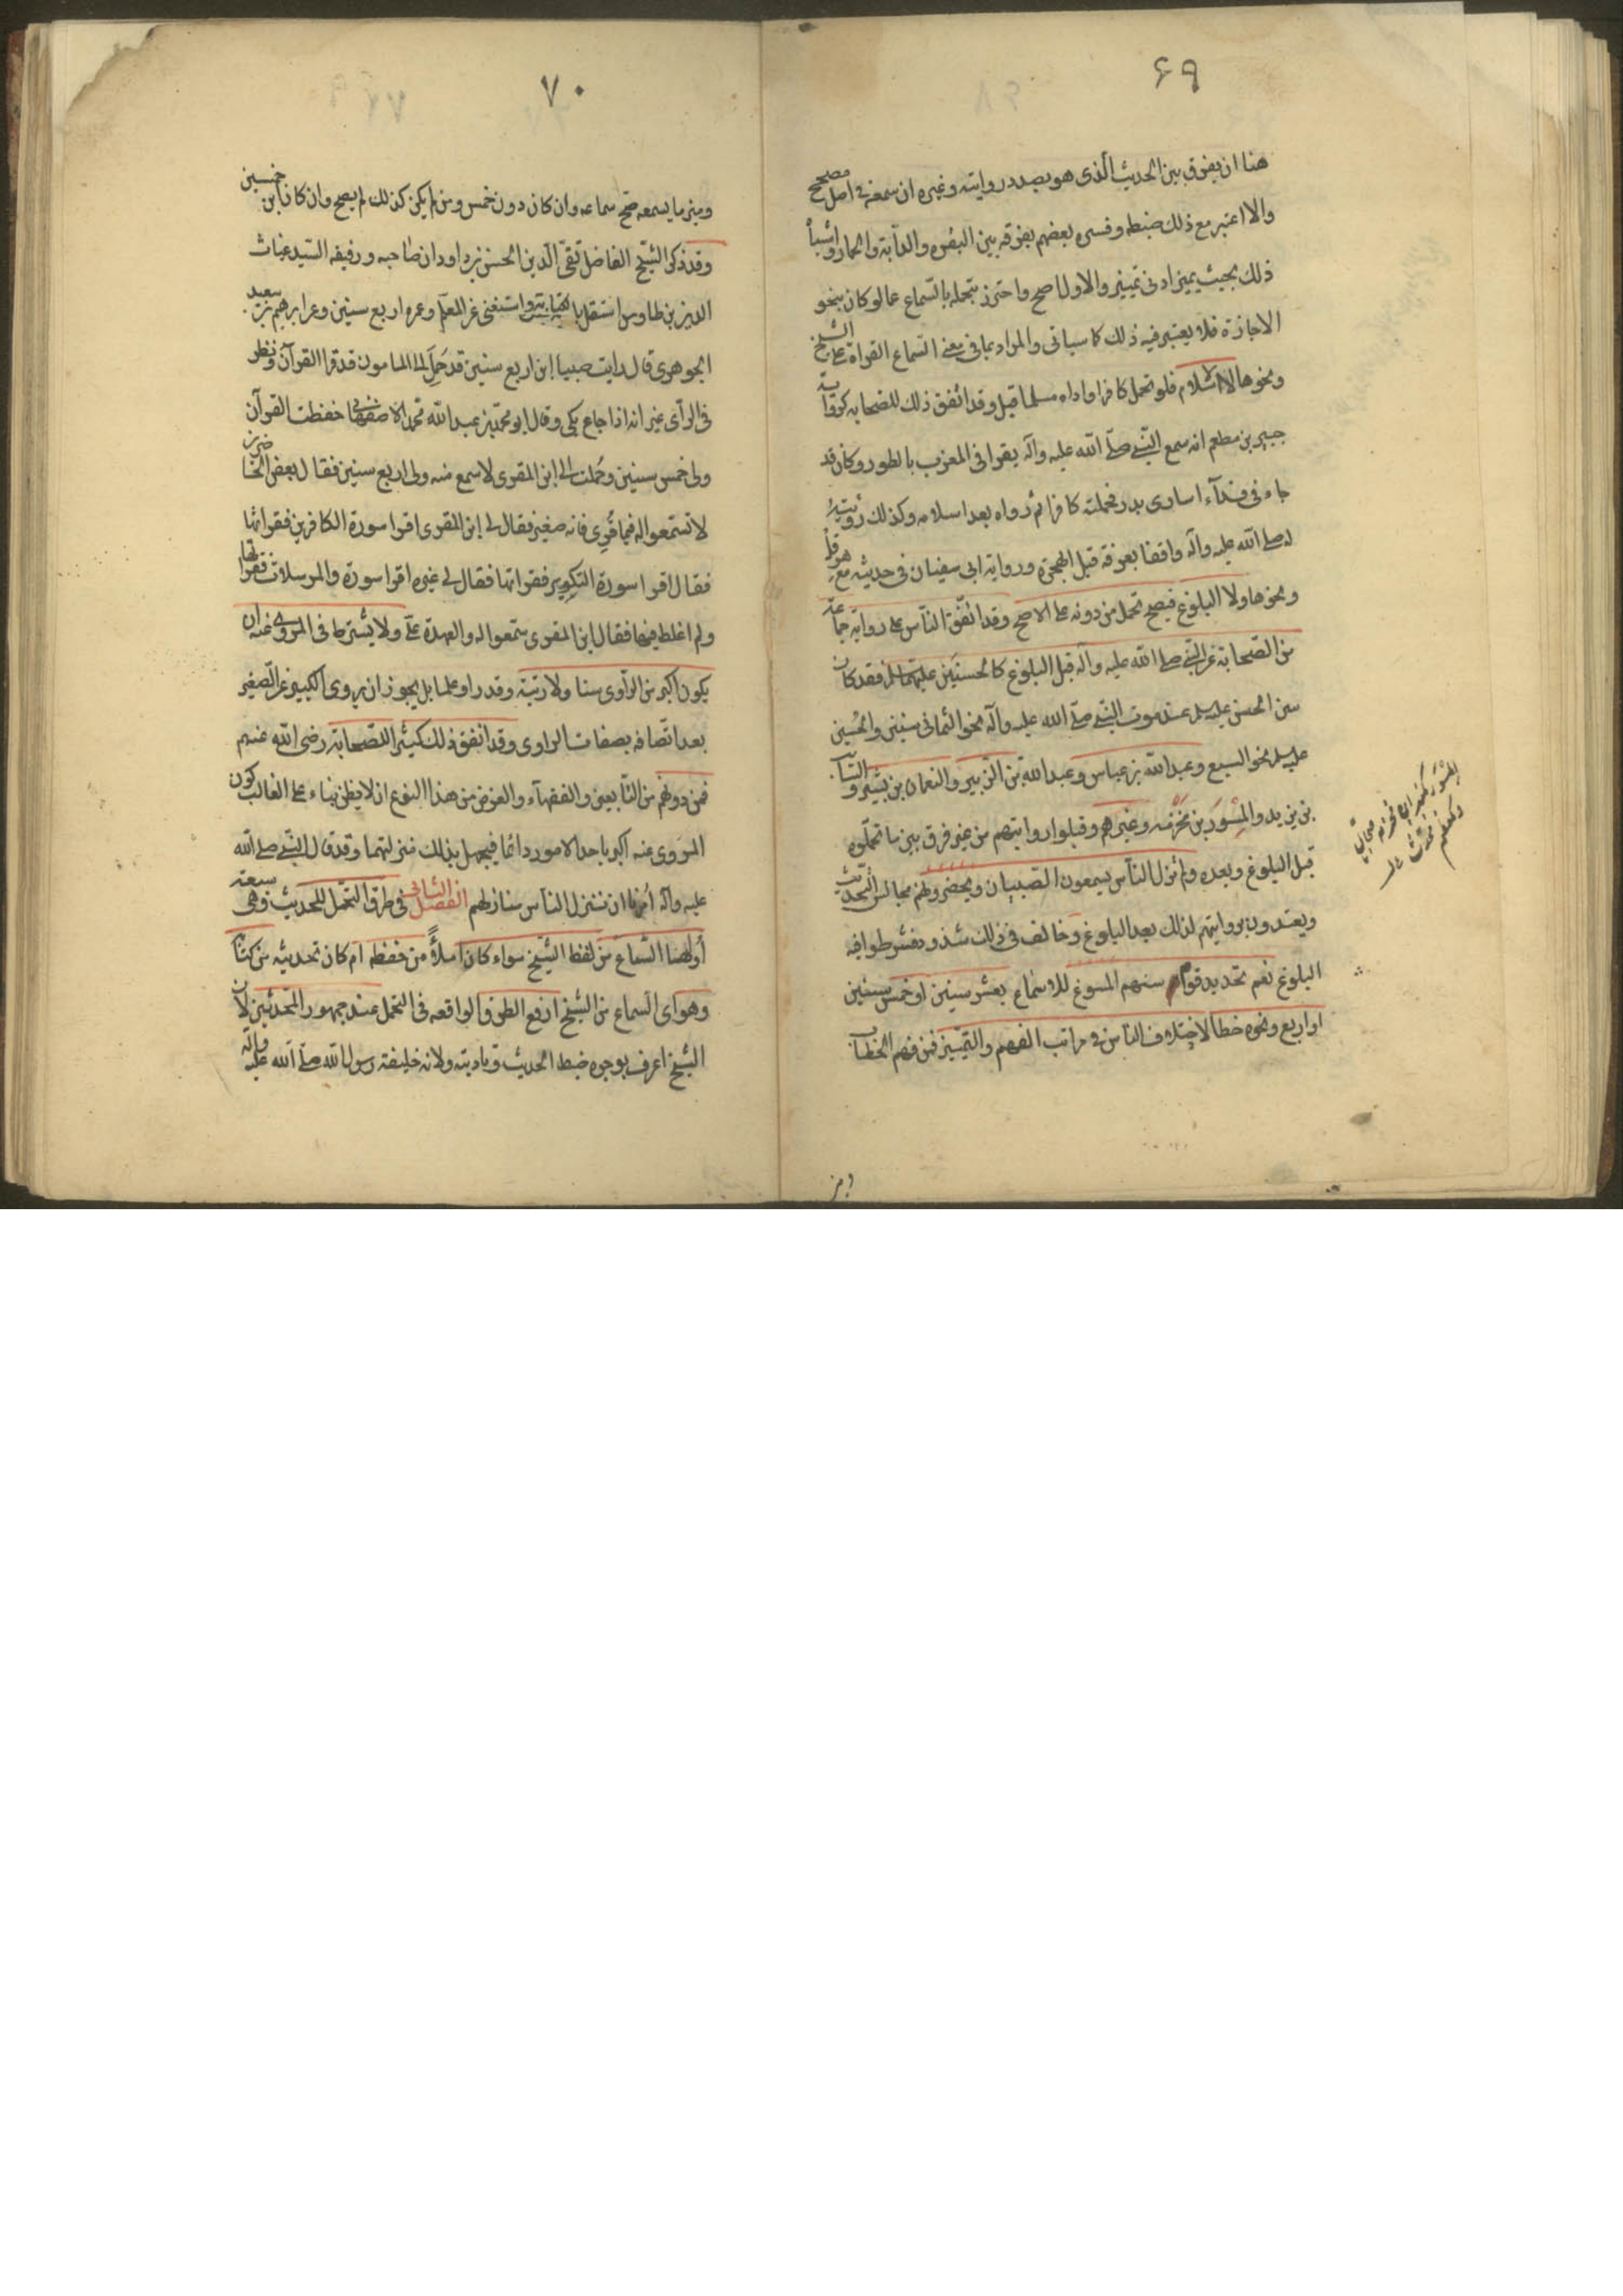 ٦٩
هنا ان يفرق بين الحديث الّذى هو بصدد روايته وغيره ان سمعه فى اصل مصحح
والا اعتبر مع ذلك ضبطه وفسره بعضهم بفرقه بين البقره والدآبة والحمار واشباه
ذلك بحيث يميز ادنى تمييز والاول اصح واحترز بتحمله بالسّماع عما لو كان بنحو
الاجازة فلا يعتبر فيه ذلك كما سياتى والمراد بما فى معنى السّماع القراة على الشيخ
ونحوها لا الاسلام فلو تحمل كافرا واداه مسلما قبل وقد اتّفق ذلك للصّحابه كرواية
جبير بن مطعم انه سمع النّبى صلّى الله عليه وآله يقرا فى المغرب بالطور وكان قد
جاء فى فدآء اسارى بدر فحملته كافرا ثم رواه بعد اسلامه وكذلك رويته
له صلى الله عليه وآله واقفا بعرفة قبل الهجرة ورواية ابى سفيان فى حديثه مع هرقل
ونحوها ولا البلوغ فيصح تحمل من دونه على الاصح وقد اتّفق النّاس على رواية جماعة
من الصّحابة عن النّبى صلى الله عليه وآله قبل البلوغ كالحسنَين عليهما السلم فقد كان
سن الحسن عليه السلم عند موت النّبى صلّى الله عليه وآله نحو الثمانى سنين والحُسين
عليه السلم نحو السبع وعبد الله بن عباس وعبد الله بن الزّبير والنعمان بن بشير والسّائب
بن يزيد والمِسْوَر بن مَخْرَمه وغيرهم وقبلوا روايتهم من غير فرق بين ما تحمّلوه
قبل البلوغ وبعده ولم يزل النّاس يسمعون الصّبيان ويحضرونهم مجالس التّحديث
ويعتدون بروايتهم لذلك بعد البلوغ وخالف فى ذلك شذوذ فشرطوا فيه
البلوغ نعم تحديد قوم سنهم المسوغ للاسماع بعشر سنين او خمس سنين
او اربع ونحوه خطا لاختلاف النّاس فى مراتب الفهم والتّميّيز فمن فهم الخطاب
٧٠
وميز ما يسمعه صحّ سماعه وان كان دون خمس ومن لم يكن كذلك لم يصح وان كان ابن خمسين
وقد ذكر الشّيخ الفاضل تقىّ الدّين الحسن بن داود ان صاحبه ورفيقه السّيد غياث
الدين بن طاوس استقل بالكتابة واستغنى عن المعلّم وعمره اربع سنين وعن ابرهيم بن سعيد
الجوهرى قال رايت صبيا ابن اربع سنين قد حُمِل الى المامون قد قرا القرآن ونظر
فى الرّأى غير انه اذا جاع يبكى وقال ابو محمّد بن عبد الله محمد الاصفهانى حفظت القرآن
ولى خمس سنين وحُملت الى ابن المقرى لاسمع منه ولى اربع سنين فقال بعض الحاضرين
لا تستمعوا له فيما قُرِى فانه صغير فقال لى ابن المقرى اقرا سورة الكافرين فقراتها
فقال اقرا سورة التكوير فقراتها فقال لى غيره اقرا سورة والمرسلات فقراتها
ولم اغلط فيها فقال ابن المقرى سمعوا له والعهدة علىّ ولا يشترط فى المروى عنه ان
يكون اكبر من الرّاوى سنا ولا رتبة وقدرا وعلما بل يجوز ان يروى الكبير عن الصّغير
بعد اتّصافه بصفات الراوى وقد اتّفق ذلك كثيرا للصّحابة رضى الله عنهم
فمن دونهم من التّابعين والفقهآء والغرض من هذا النوع ان لا يظن بناء على الغالب كون
المروى عنه اكبر باحد الامور دائما فيجهل بذلك منزلتهما وقد قال النّبى صلى الله
عليه وآله اُمرنا ان ننزل النّاس منازلهم الفصل الثّانى فى طرق التحمّل للحديث وهى سبعة
أولها السّماع من لفظ الشّيخ سواء كان املاءً من حفظه ام كان تحديثه من كتابه
وهو اى السّماع من الشّيخ ارفع الطرق الواقعه فى التحمّل عند جمهور المحّدثين لان
الشّيخ اعرف بوجوه ضبط الحديث وتاديته ولانه خليفة رسول الله صلّى الله عليه وآله